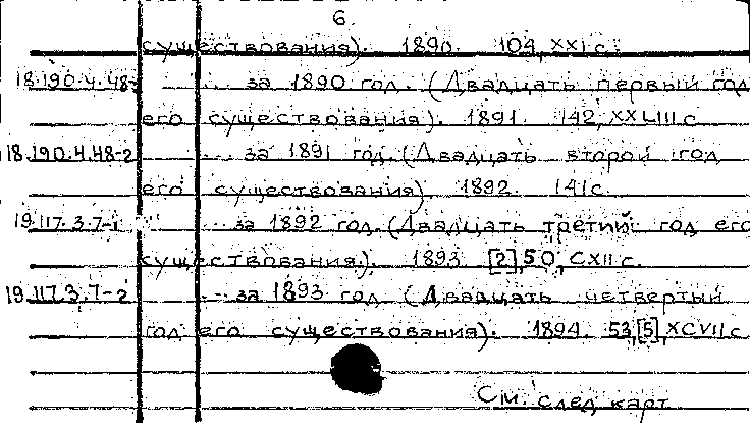 6.
существования). 1890. 104, XXI с.
18.190.4.48- ... за 1890 год. (Двадцать первый год
его существования). 1891. 142, XXLIII с
18.190.4.48-2 ... за 1891 год. (Двадцать второй год
его существования). 1892. 141 с.
19.117.3.7-1 ... за 1892 год. (Двадцать третий год его
существования). 1893. [2], 50, CXII с.
19.117.3.7-2 ... за 1893 год (Двадцать четвертый
год его существования). 1894. 53, [5], XCVII с
См. след карт